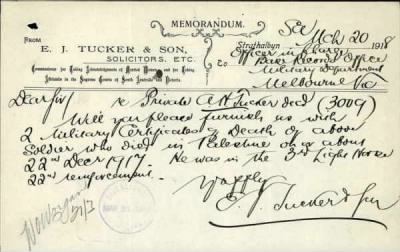 MEMORANDUM.
FROM
E. J. TUCKER & SON,
SOLICITORS, ETC.
Commissioners for taking Acknowledgments of Married Women, and for taking
Affidavits in the Supreme Courts of South Australia and Victoria.
Strathalbyn Mch 20 1918
To Officer in Charge
Base Records Office
Military Department
Melbourne Vic
Dear Sir re Private A H Tucker decd (3009)
Will you please furnish us with
2 Military Certificates of Death of above
Soldier who died in Palestine on or about
22nd Decr 1917. He was in the 3rd Light Horse
22nd reinforcement.
Yrs ffly
E. J. Tucker & Son